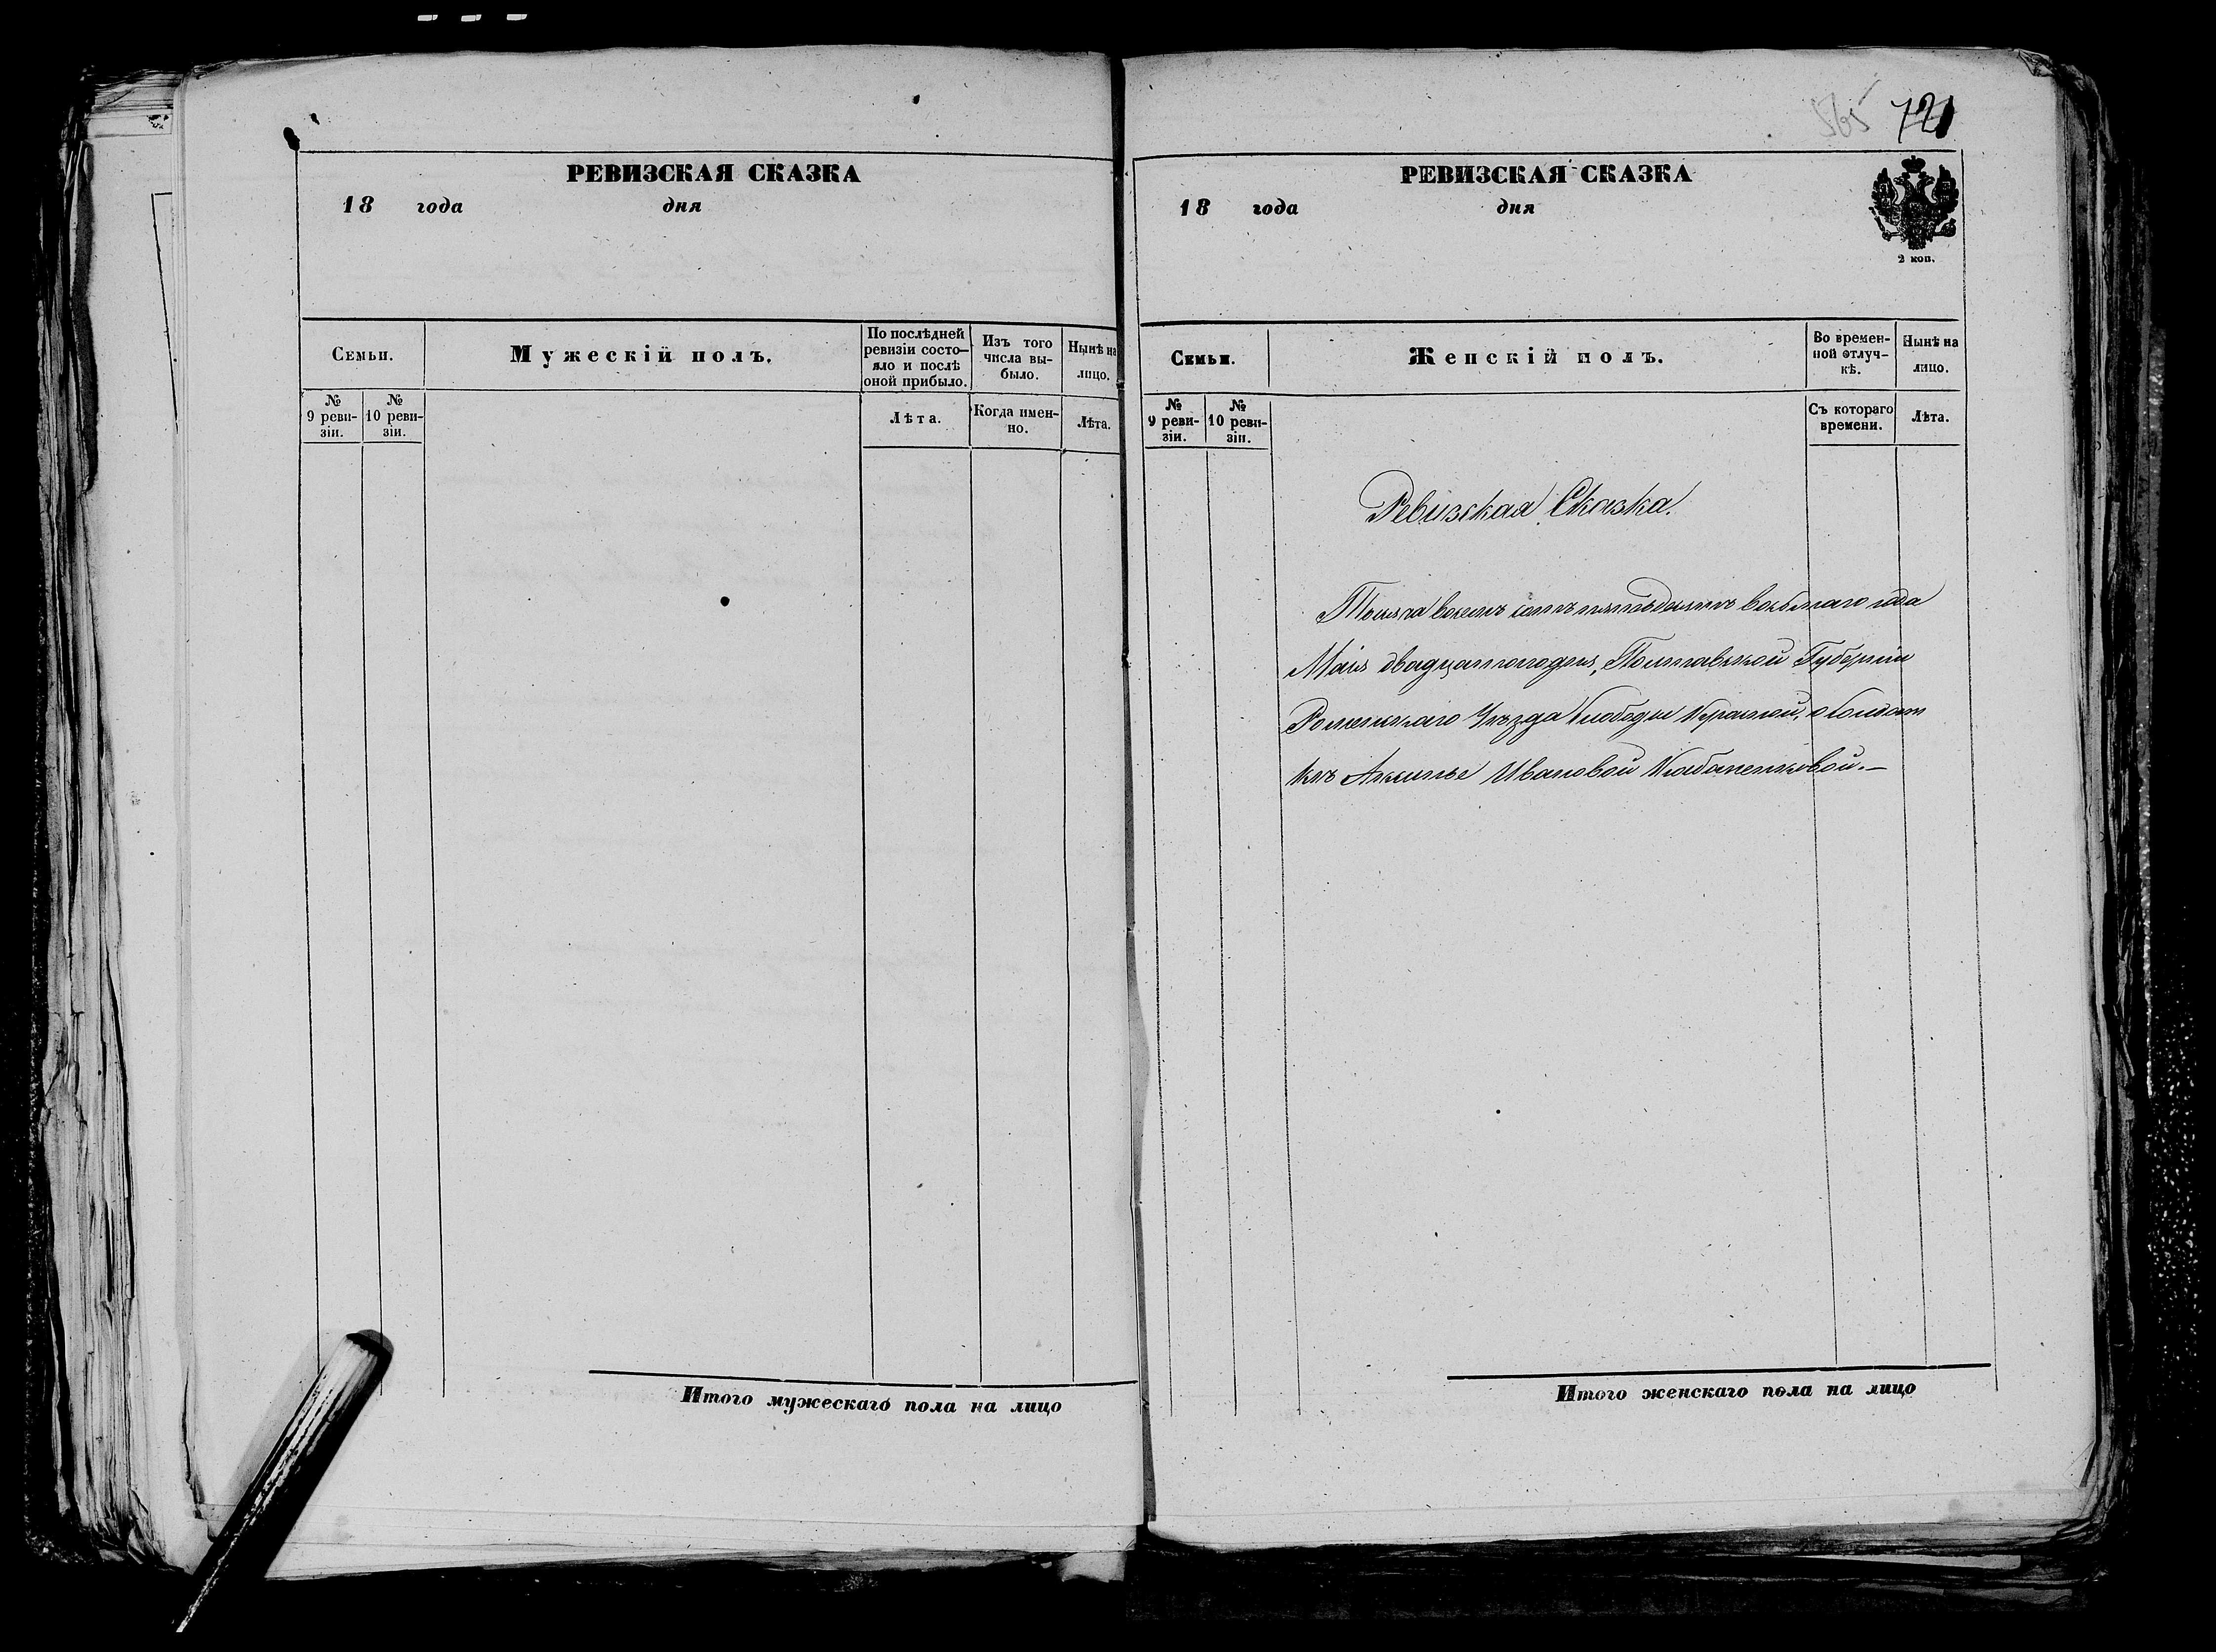 РЕВИЗСКАЯ СКАЗКА
18 года дня
Семьи.
Мужескій полъ.
По послѣдней
ревизіи состо—
яло и послѣ
оной прибыло.
Изъ того
числа вы-
было.
Нынѣ на
лицо.
№
9 реви-
зіи.
№
10 реви-
зіи.
Лѣта.
Когда имен-
но.
Лѣта.
Итого мужескаго пола на лицо
565 721
РЕВИЗСКАЯ СКАЗКА
18 года дня
2 коп.
Семьи.
Женскій полъ.
Во времен-
ной отлуч-
кѣ.
Нынѣ на
лицо.
№
9 реви-
зіи.
№
10 реви-
зіи.
Съ котораго
времени.
Лѣта.
Ревизская Сказка.
Тысяча восемь сотъ пятьдесятъ восьмаго года
Маія двадцатогодня, Полтавской Губерніи
Роменскаго Уѣзда Слободы Курмной, о солдат
кѣ Аксинье Ивановой Кабаненковой.—
Итого женскаго пола на лицо